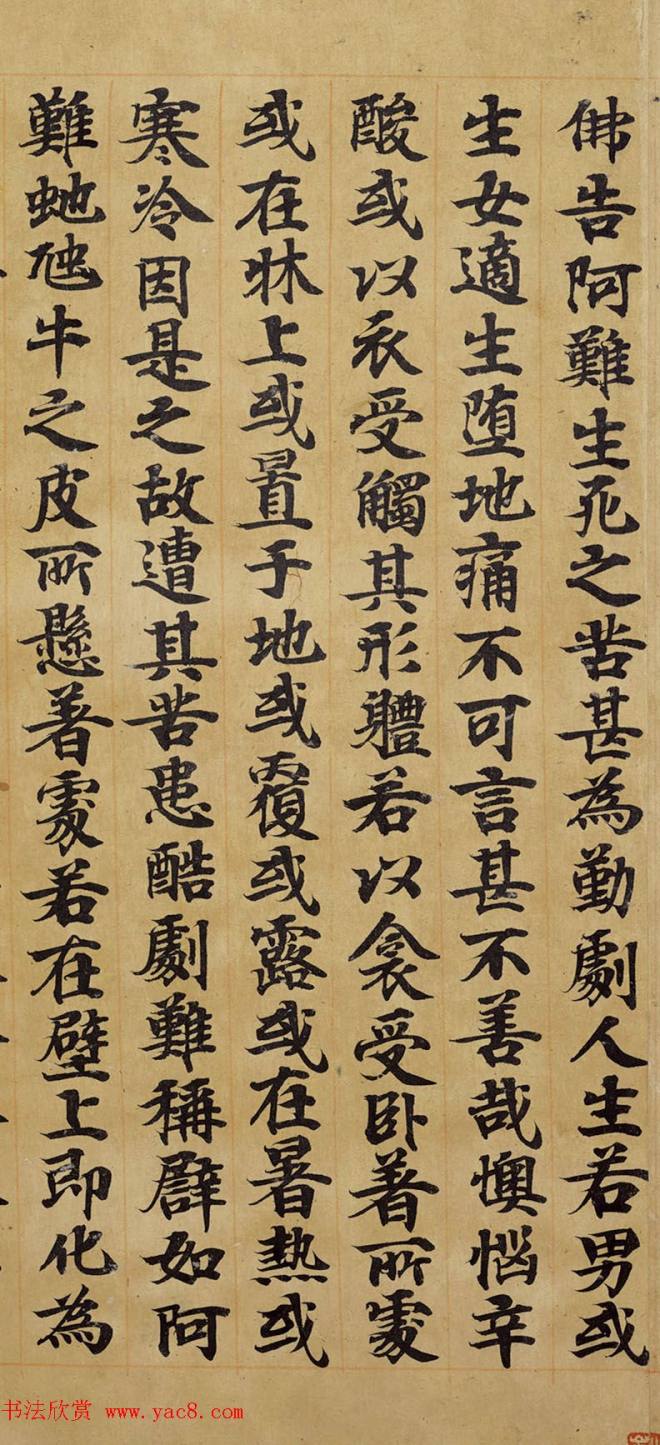 佛告阿難生死之苦甚為勤劇人生若男或
生女適生堕地痛不可言甚不善哉懊惱辛
酸或以衣受觸其形軆若以衾受卧著所處
或在牀上或置于地或覆或露或在暑熱或
寒冷因是之故遭其苦患酷劇難稱譬如阿
難虵虺牛之皮所懸著處若在壁上即化為
书法欣赏 www.yac8.com